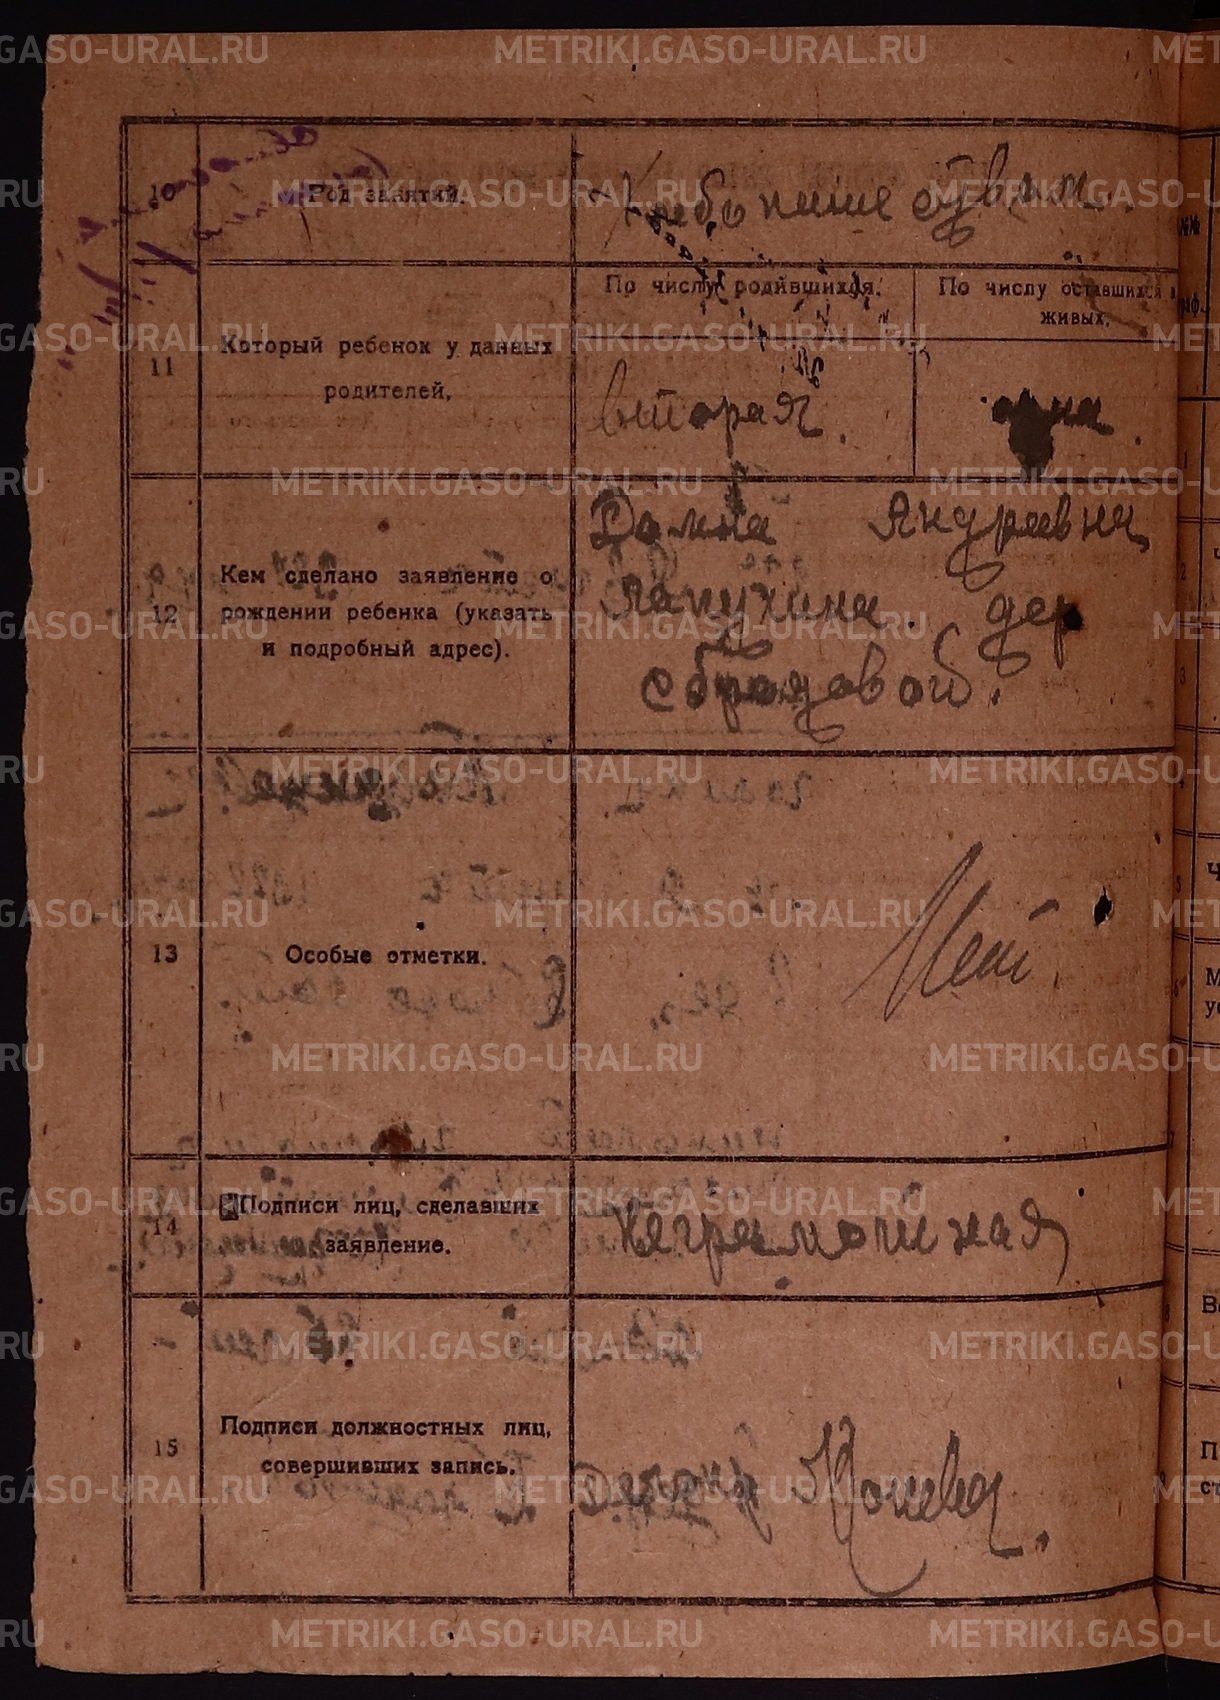 10
Род занятий.
11
Который ребенок у данных
родителей,
По числу родившихся.
По числу оставшихся в
живых.
вторая.
одна.
12
Кем сделано заявление о
рождении ребенка (указать
и подробный адрес).
Домна Андревна
Лапухина. дер
13
Особые отметки.
Нет
14
Подписи лиц, сделавших
заявление.
Неграмотная
15
Подписи должностных лиц,
совершивших запись.
METRIKI.GASO-URAL.RU